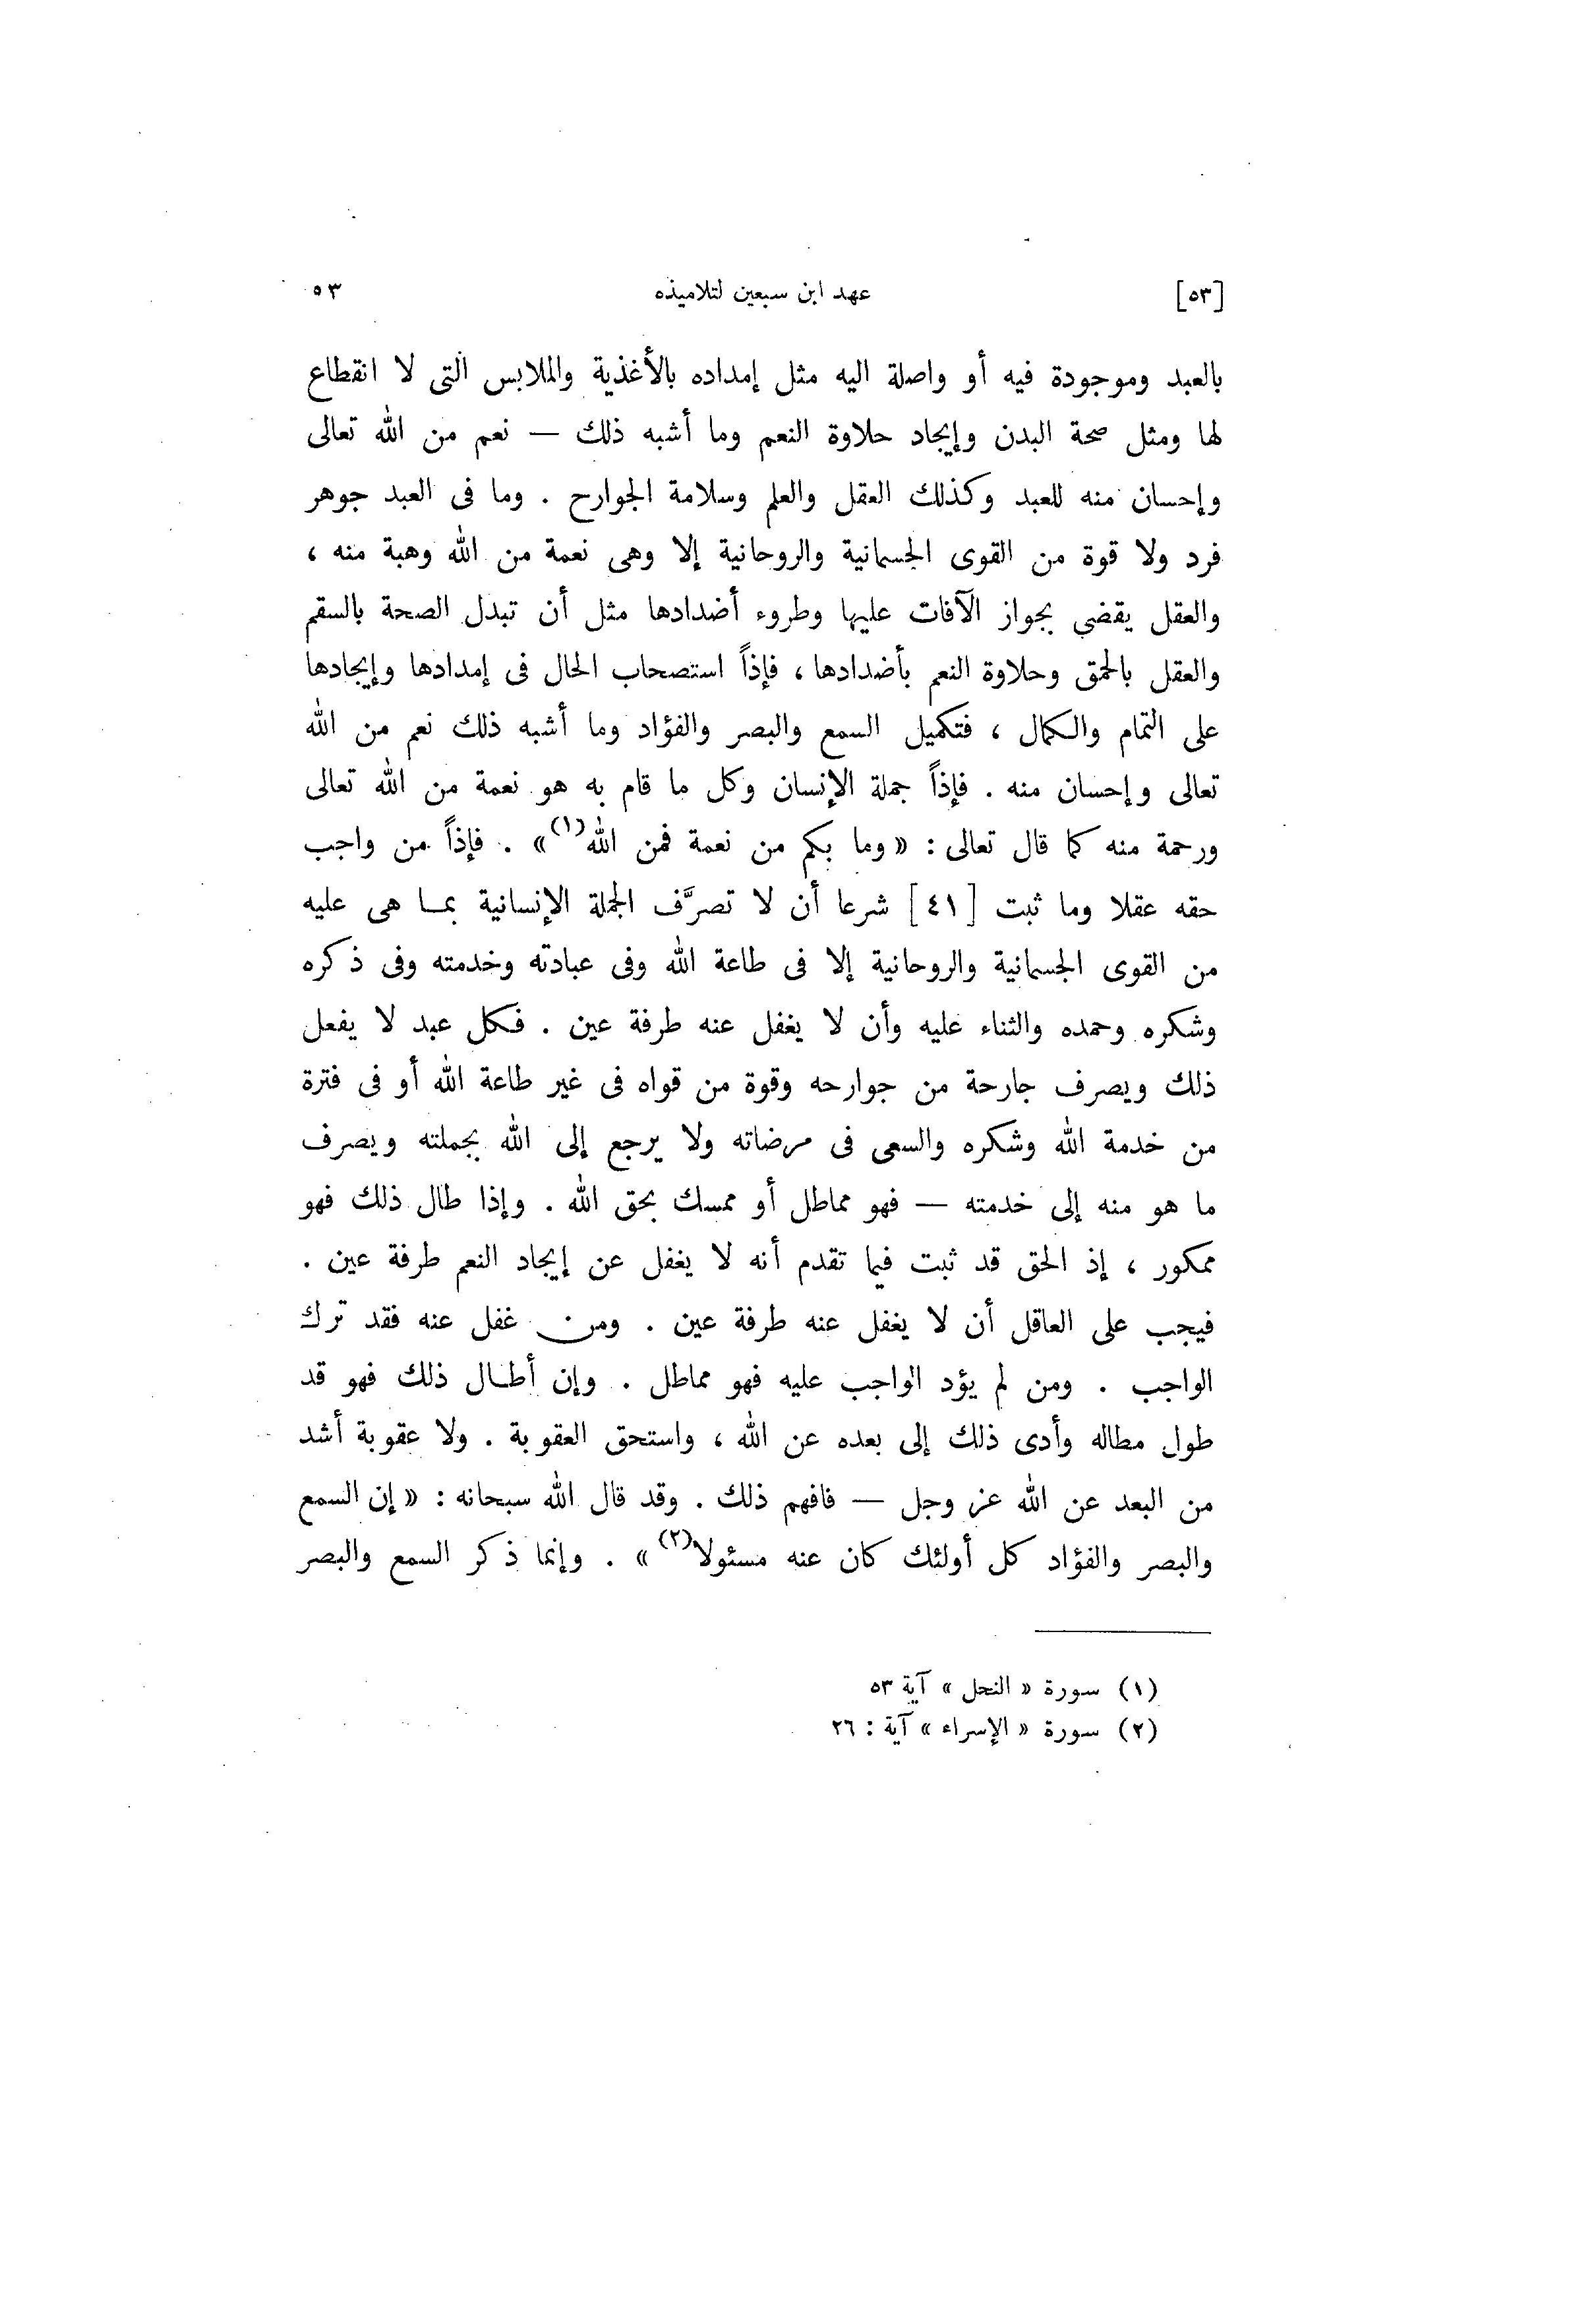 [٥٣] عهد ابن سبعين لتلاميذه ٥٣
بالعبد وموجودة فيه أو واصلة اليه مثل إمداده بالأغذية والملابس التى لا انقطاع
لها ومثل صحة البدن وإيجاد حلاوة النعم وما أشبه ذلك — نعم من الله تعالى
وإحسان منه للعبد وكذلك العقل والعلم وسلامة الجوارح . وما فى العبد جوهر
فرد ولا قوة من القوى الجسمانية والروحانية إلا وهى نعمة من الله وهبة منه ،
والعقل يقضى بجواز الآفات عليها وطروء أضدادها مثل أن تبدل الصحة بالسقم
والعقل بالحمق وحلاوة النعم بأضدادها ، فإذاً استصحاب الحال فى إمدادها وإيجادها
على التمام والكمال ، فتكميل السمع والبصر والفؤاد وما أشبه ذلك نعم من الله
تعالى وإحسان منه . فإذاً جملة الإنسان وكل ما قام به هو نعمة من الله تعالى
ورحمة منه كما قال تعالى : « وما بكم من نعمة فمن الله(١) » . فإذاً من واجب
حقه عقلا وما ثبت [٤١] شرعا أن لا تصرَّف الجملة الإنسانية بما هى عليه
من القوى الجسمانية والروحانية إلا فى طاعة الله وفى عبادته وخدمته وفى ذكره
وشكره وحمده والثناء عليه وأن لا يغفل عنه طرفة عين . فكل عبد لا يفعل
ذلك ويصرف جارحة من جوارحه وقوة من قواه فى غير طاعة الله أو فى فترة
من خدمة الله وشكره والسعى فى مرضاته ولا يرجع إلى الله بجملته ويصرف
ما هو منه إلى خدمته — فهو مماطل أو ممسك بحق الله . وإذا طال ذلك فهو
ممكور ، إذ الحق قد ثبت فيما تقدم أنه لا يغفل عن إيجاد النعم طرفة عين .
فيجب على العاقل أن لا يغفل عنه طرفة عين . ومن غفل عنه فقد ترك
الواجب . ومن لم يؤد الواجب عليه فهو مماطل . وإن أطال ذلك فهو قد
طول مطاله وأدى ذلك إلى بعده عن الله ، واستحق العقوبة . ولا عقوبة أشد
من البعد عن الله عز وجل — فافهم ذلك . وقد قال الله سبحانه : « إن السمع
والبصر والفؤاد كل أولئك كان عنه مسئولا(٢) » . وإنما ذكر السمع والبصر
(١) سورة « النحل » آية ٥٣
(٢) سورة « الإسراء » آية : ٢٦